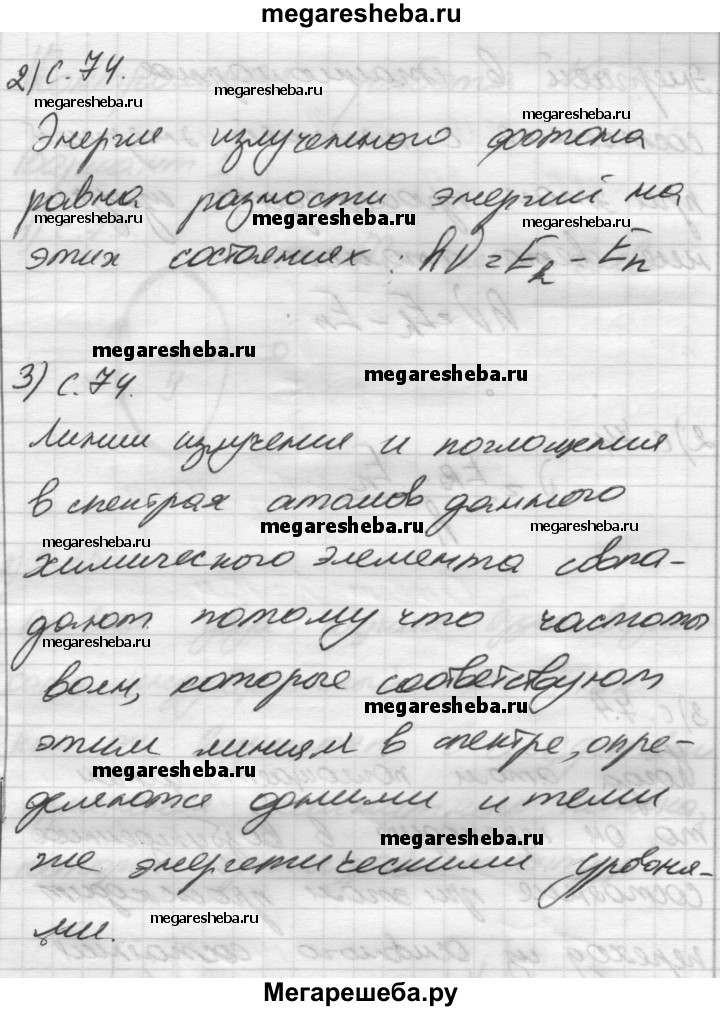 megaresheba.ru
2) с. 74.
megaresheba.ru megaresheba.ru
Энергия излученного фотона
megaresheba.ru megaresheba.ru
равна разности энергий на
megaresheba.ru megaresheba.ru megaresheba.ru
этих состояниях: hν = E_k - E_n
megaresheba.ru
3) с. 74. megaresheba.ru
Линии излучения и поглощения
в спектрах атомов данного
megaresheba.ru megaresheba.ru megaresheba.ru
химического элемента совпа-
дают потому что частоты
megaresheba.ru
волн, которые соответствуют
megaresheba.ru
этим линиям в спектре, опре-
megaresheba.ru
деляются одними и теми
megaresheba.ru
же энергетическими уровня-
ми. megaresheba.ru
Мегарешеба.ру